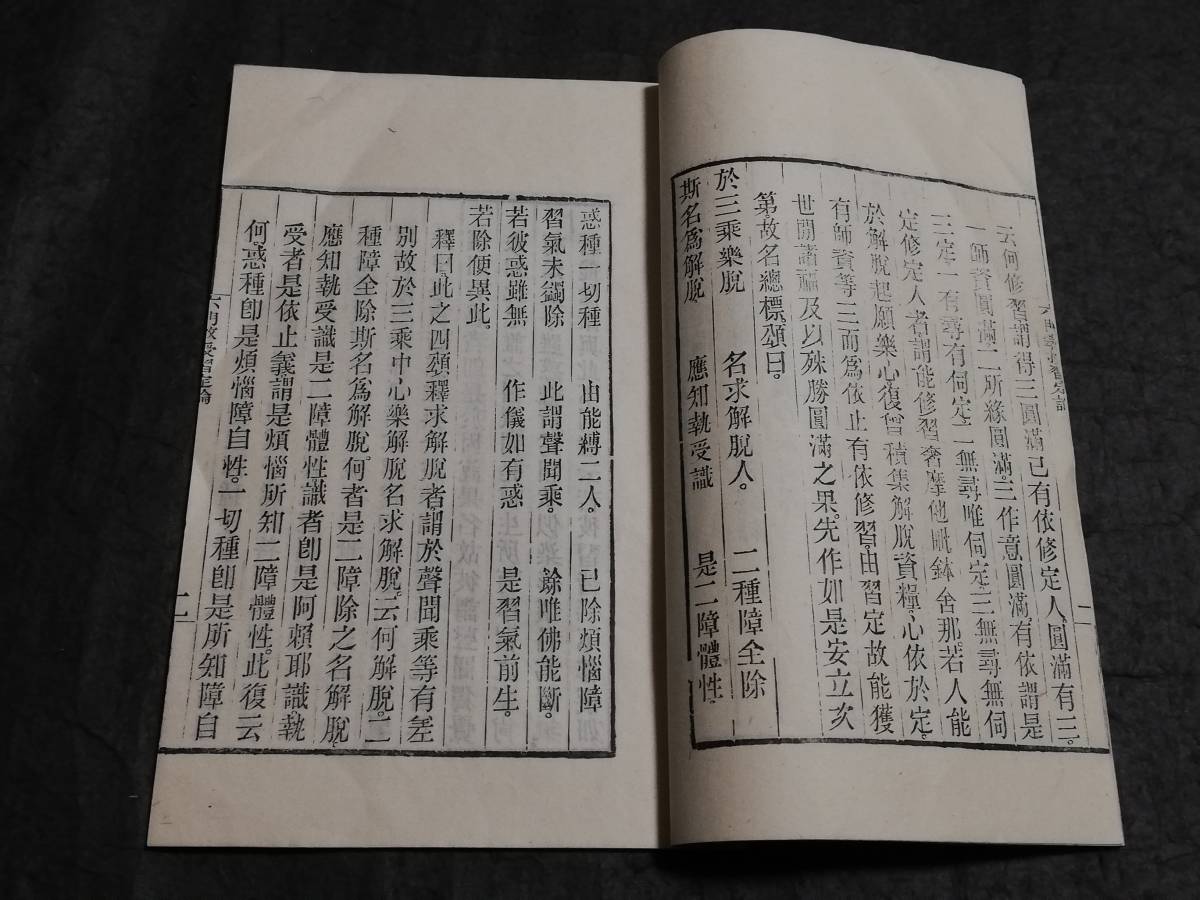 云何修習謂得三圓滿已有依修定人圓滿有三。
一師資圓滿二所緣圓滿。三作意圓滿。有依謂是
三定一有尋有伺定二無尋唯伺定。三無尋無伺
定修定人者謂能修習奢摩他毗鉢舍那若人能
於解脫起願樂心復曾積集解脫資糧。心依於定。
有師資等三而爲依止有依修習。由習定故能獲
世間諸福及以殊勝圓滿之果。先作如是安立次
第故名總標頌曰。
於三乘樂脫 名求解脫人。 二種障全除
斯名爲解脫 應知執受識 是二障體性。
惑種一切種 由能縛二人。 已除煩惱障
習氣未蠲除 此謂聲聞乘。 餘唯佛能斷。
若彼惑雖無 作儀如有惑 是習氣前生。
若除便異此。
釋曰。此之四頌釋求解脫者。謂於聲聞乘等有差
別故於三乘中心樂解脫名求解脫。云何解脫。二
種障全除斯名爲解脫。何者是二障除之名解脫。
應知執受識是二障體性識者卽是阿賴耶識執
受者是依止義謂是煩惱所知二障體性。此復云
何。惑種卽是煩惱障自性。一切種卽是所知障自
六門教授習定論
二